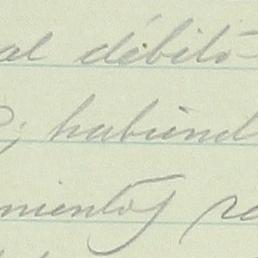 al débitó
; habiend
mientos re